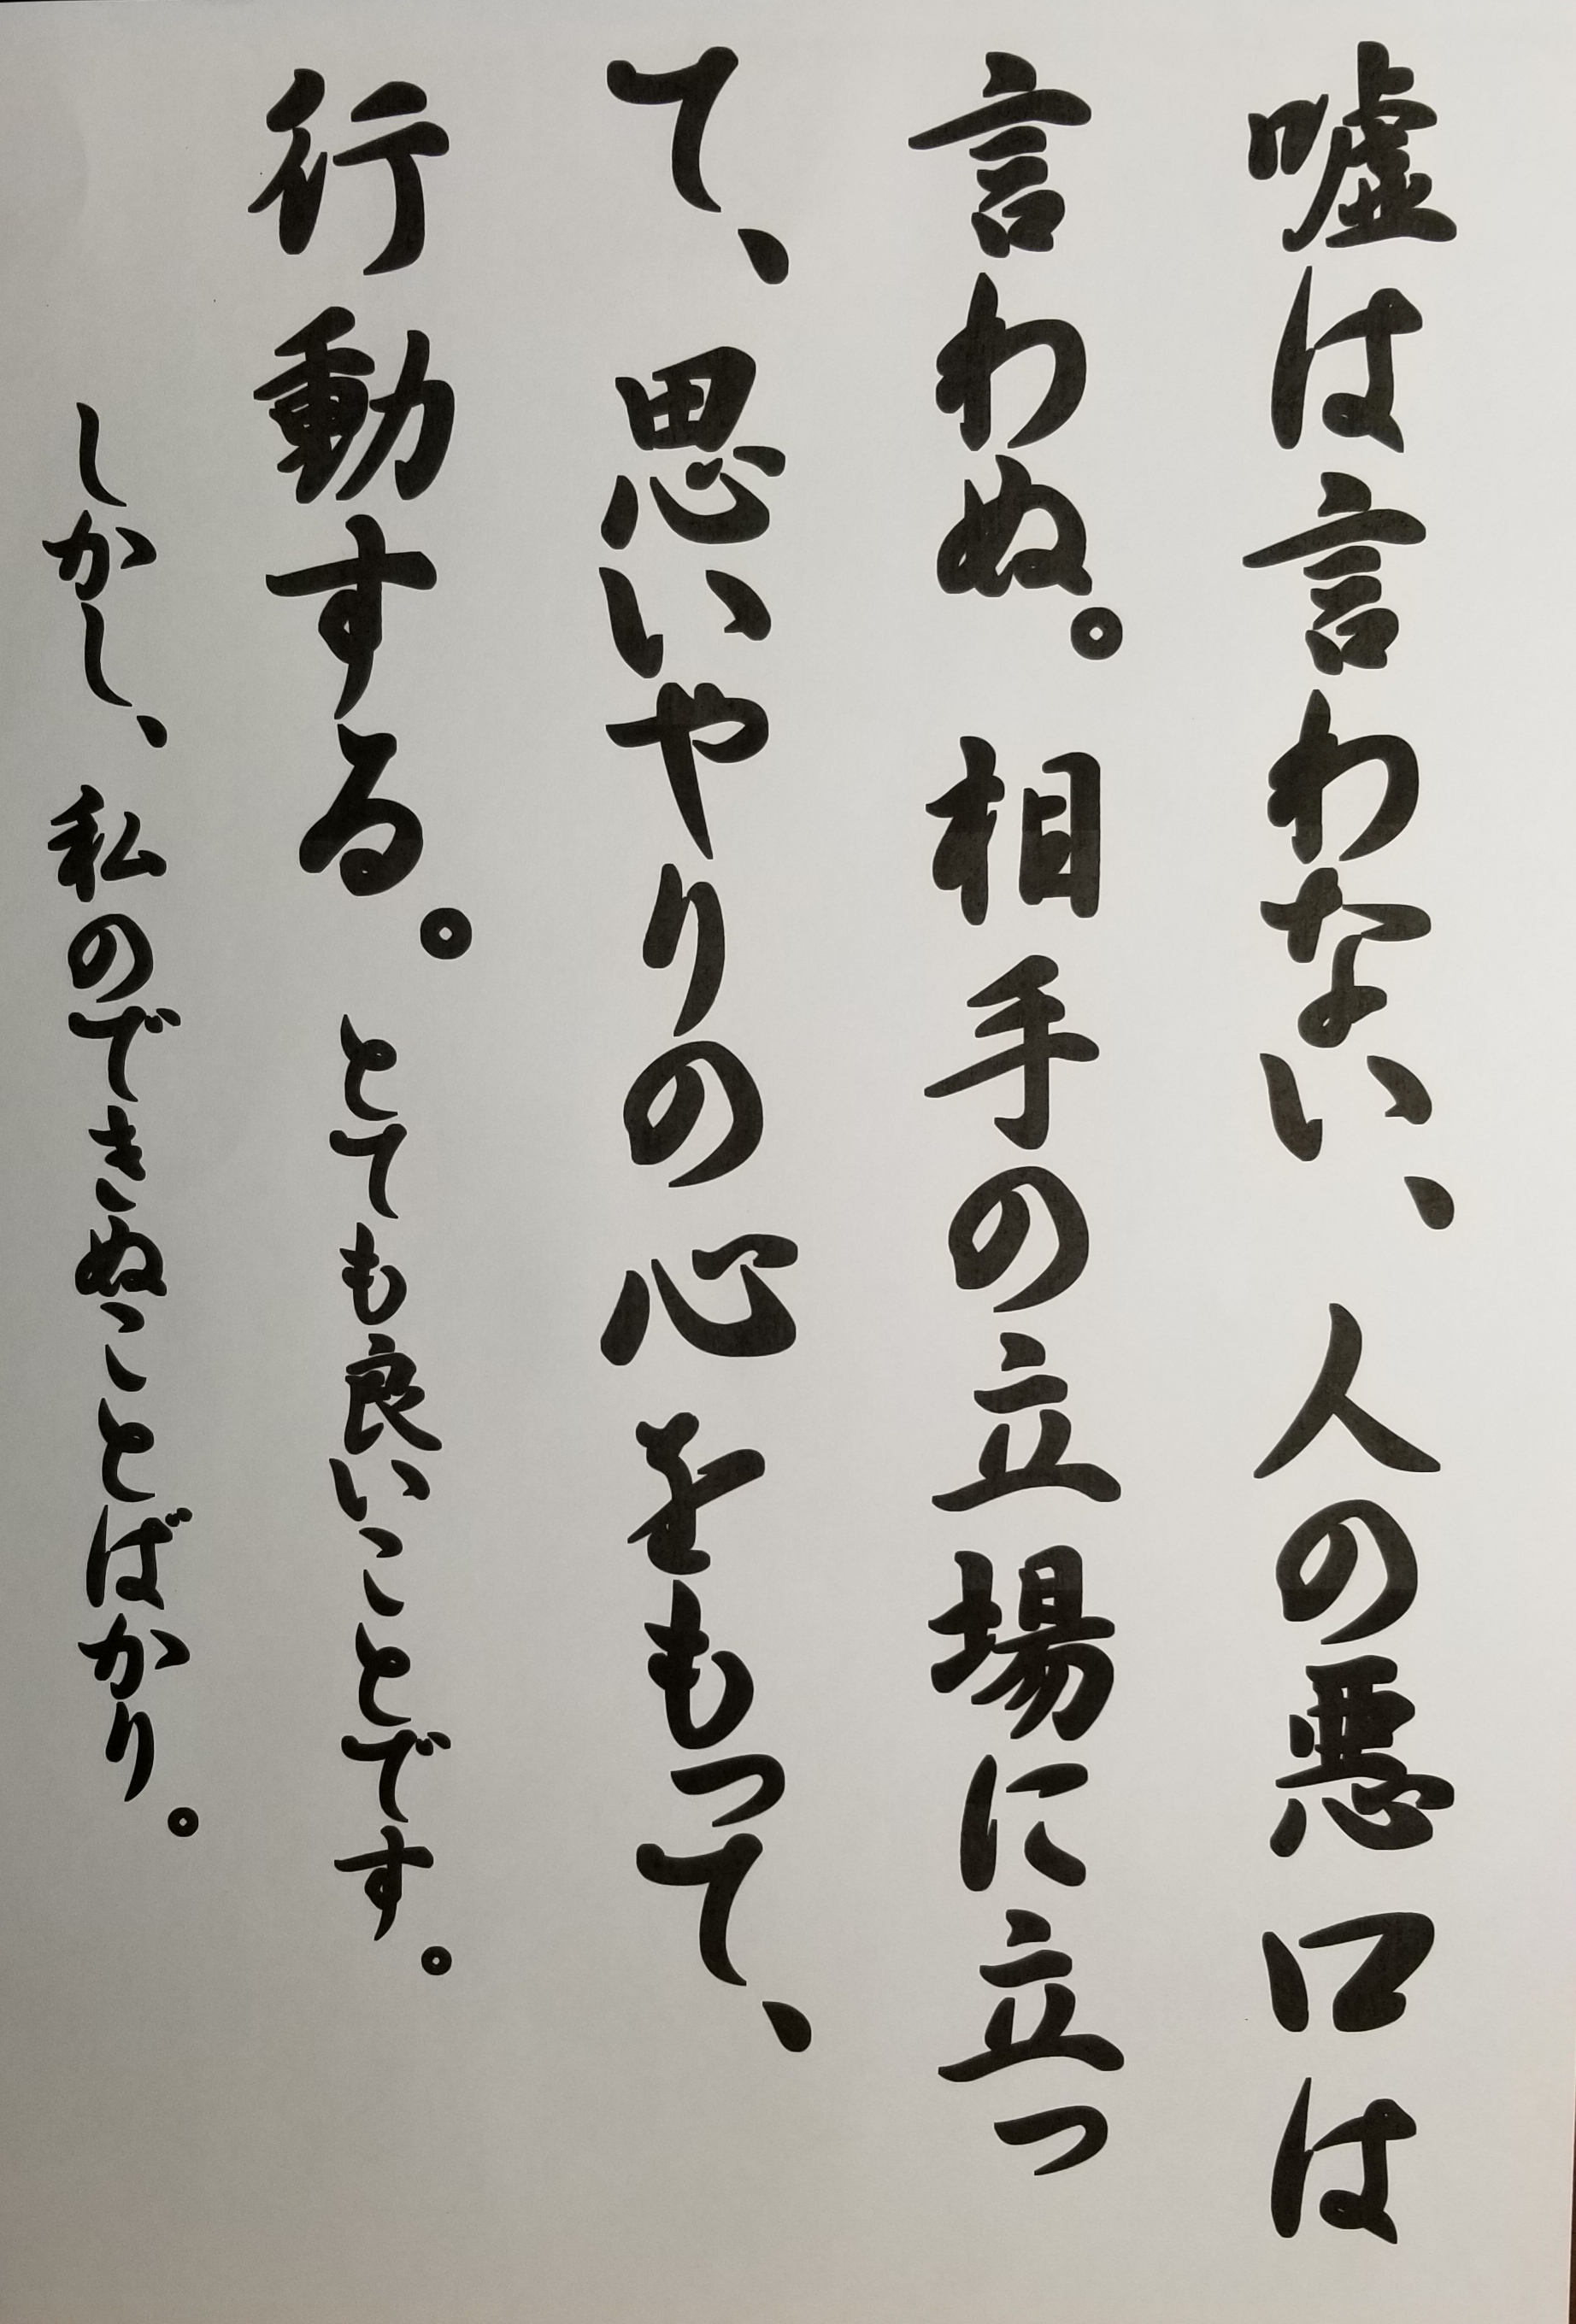 嘘は言わない、人の悪口は
言わぬ。相手の立場に立っ
て、思いやりの心をもって、
行動する。とても良いことです。
しかし、私のできぬことばかり。